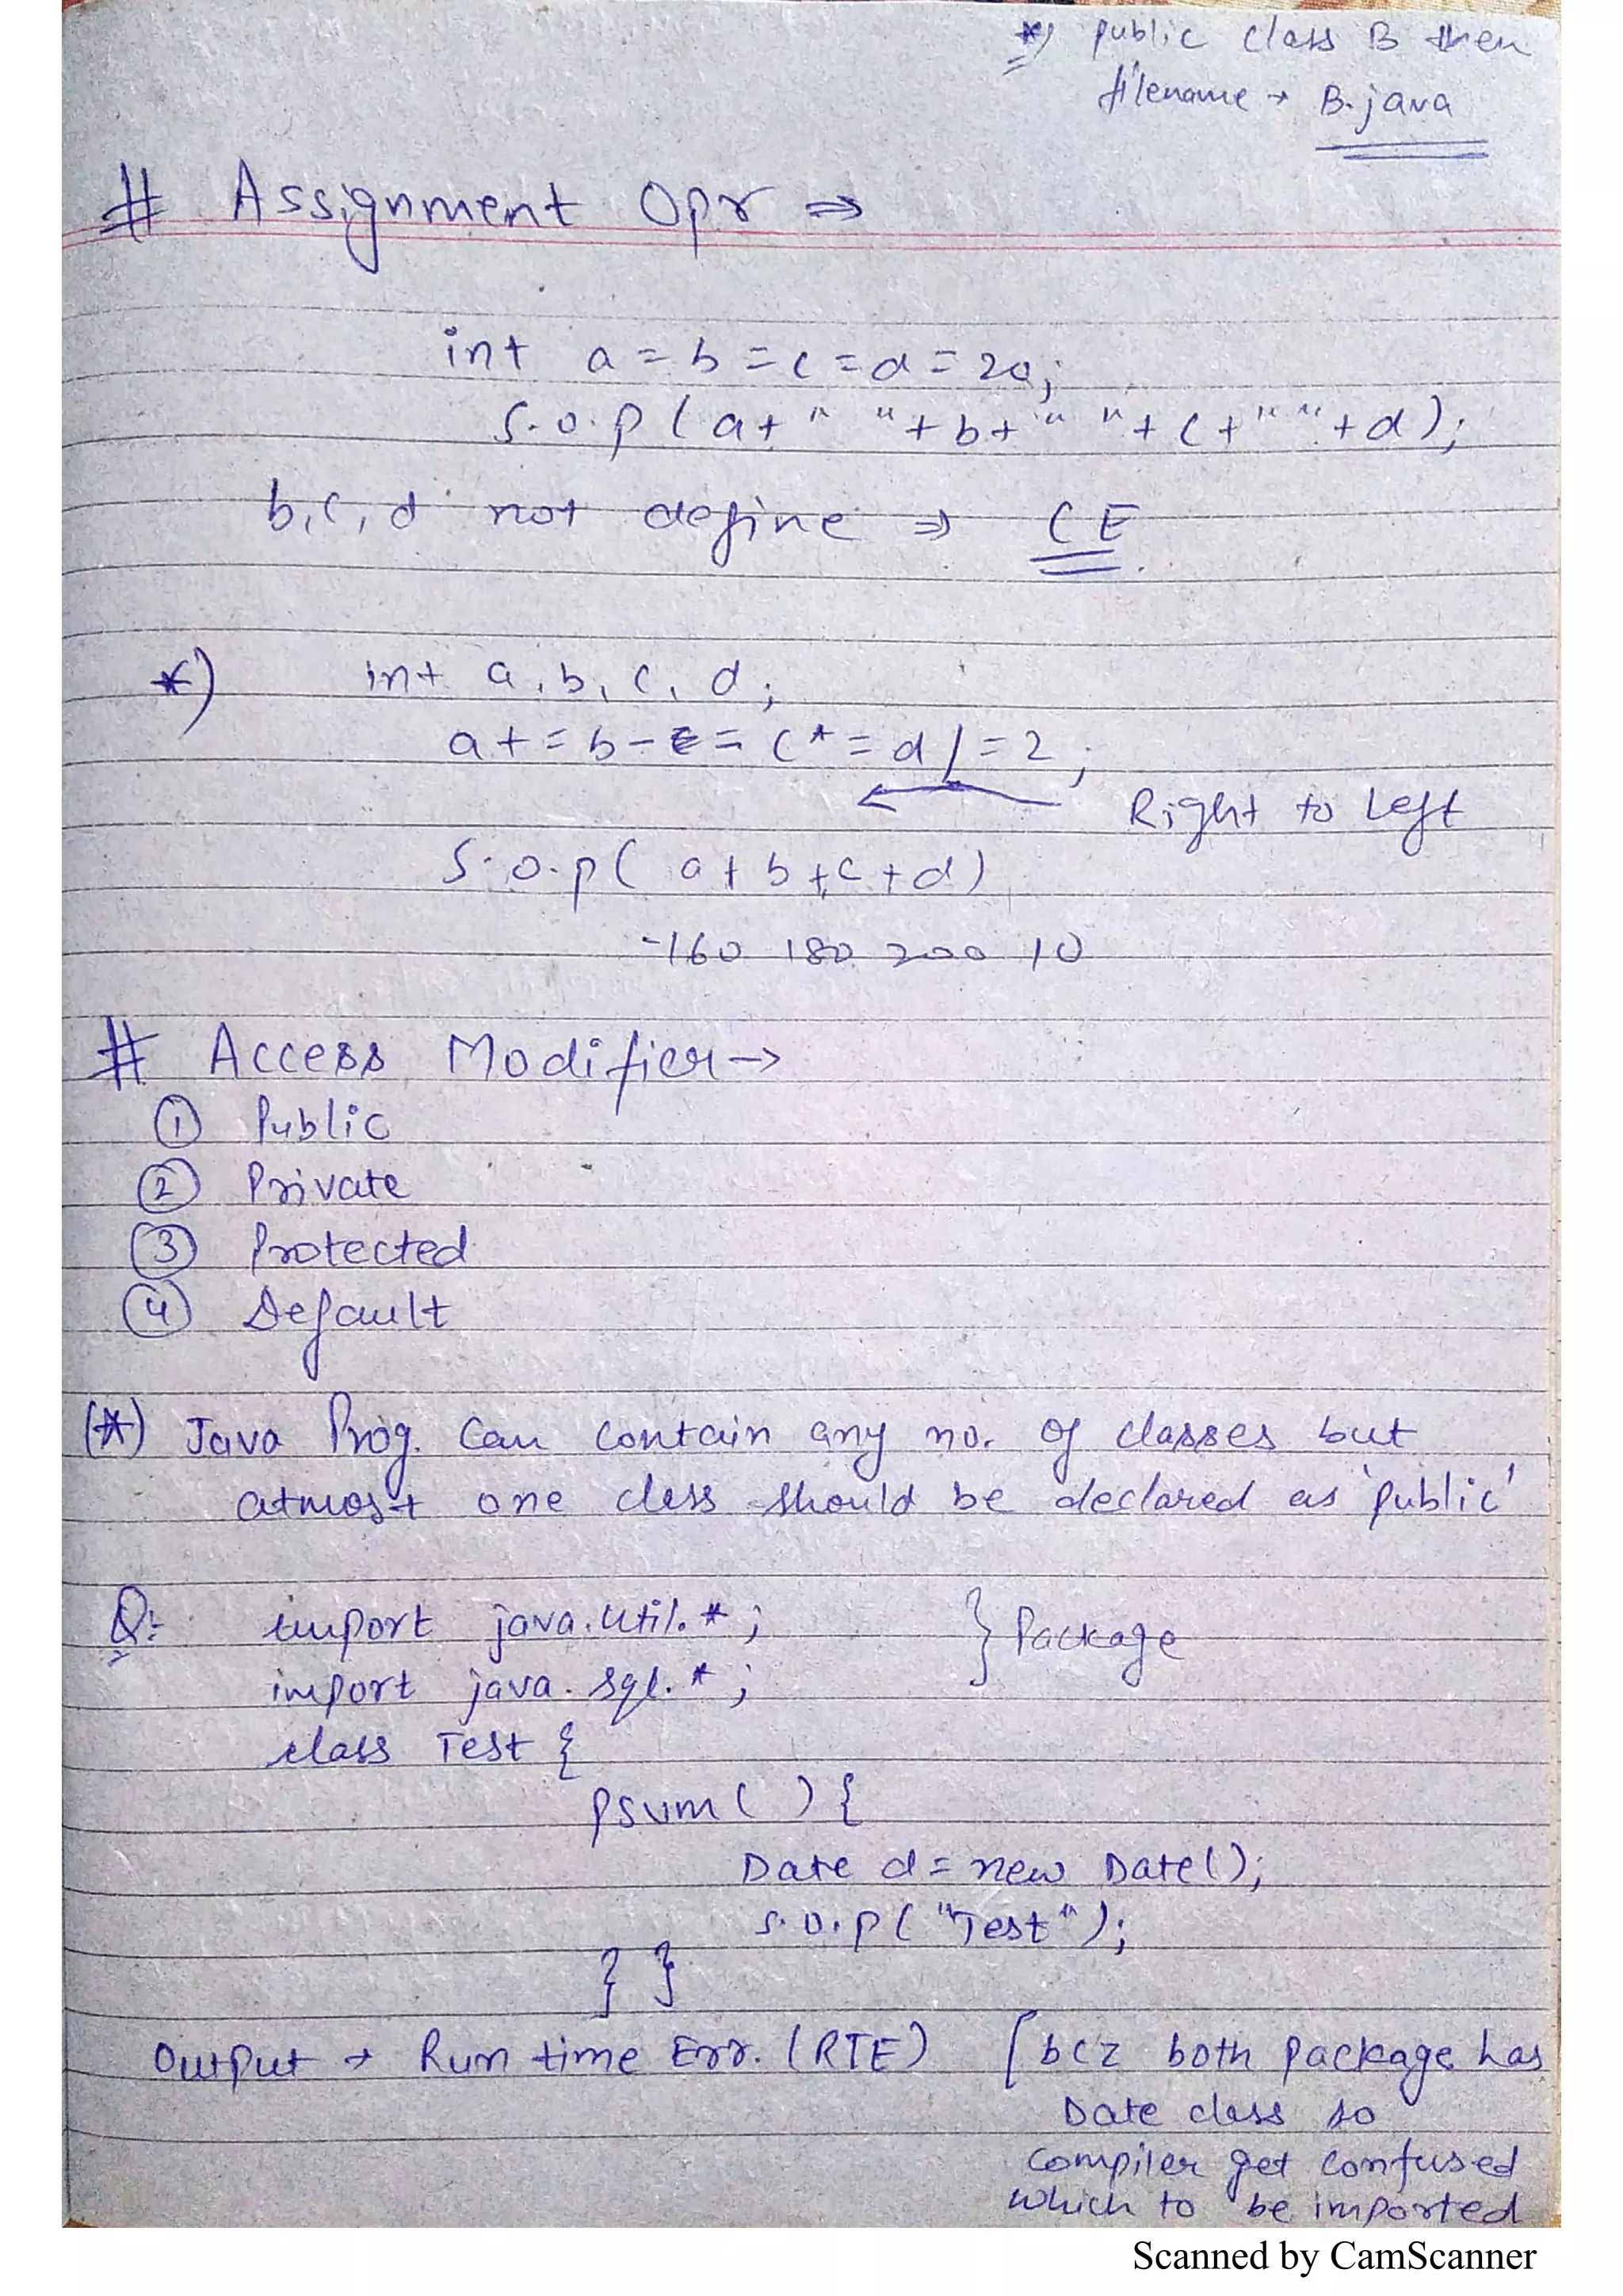 *) public class B then
filename → B.java
# Assignment Opr ⇒
int a = b = c = d = 20;
S.o.p (a+" "+b+" "+c+" "+d);
b, c, d not define ⇒ CE.
*) int a, b, c, d;
a += b -= c *= d /= 2;
Right to Left
S.o.p( a+b+c+d)
-160 180 200 10
# Access Modifier →
① Public
② Private
③ Protected
④ Default
(*) Java Prog. Can contain any no. of classes but
atmost one class should be declared as 'public'
Q: import java.util.*; } Package
import java.sql.*;
class Test {
psvm( ) {
Date d = new Date();
s.o.p( "Test" );
} }
Output → Run time Err. (RTE) [bcz both package has
Date class so
compiler get confused
which to be imported
Scanned by CamScanner